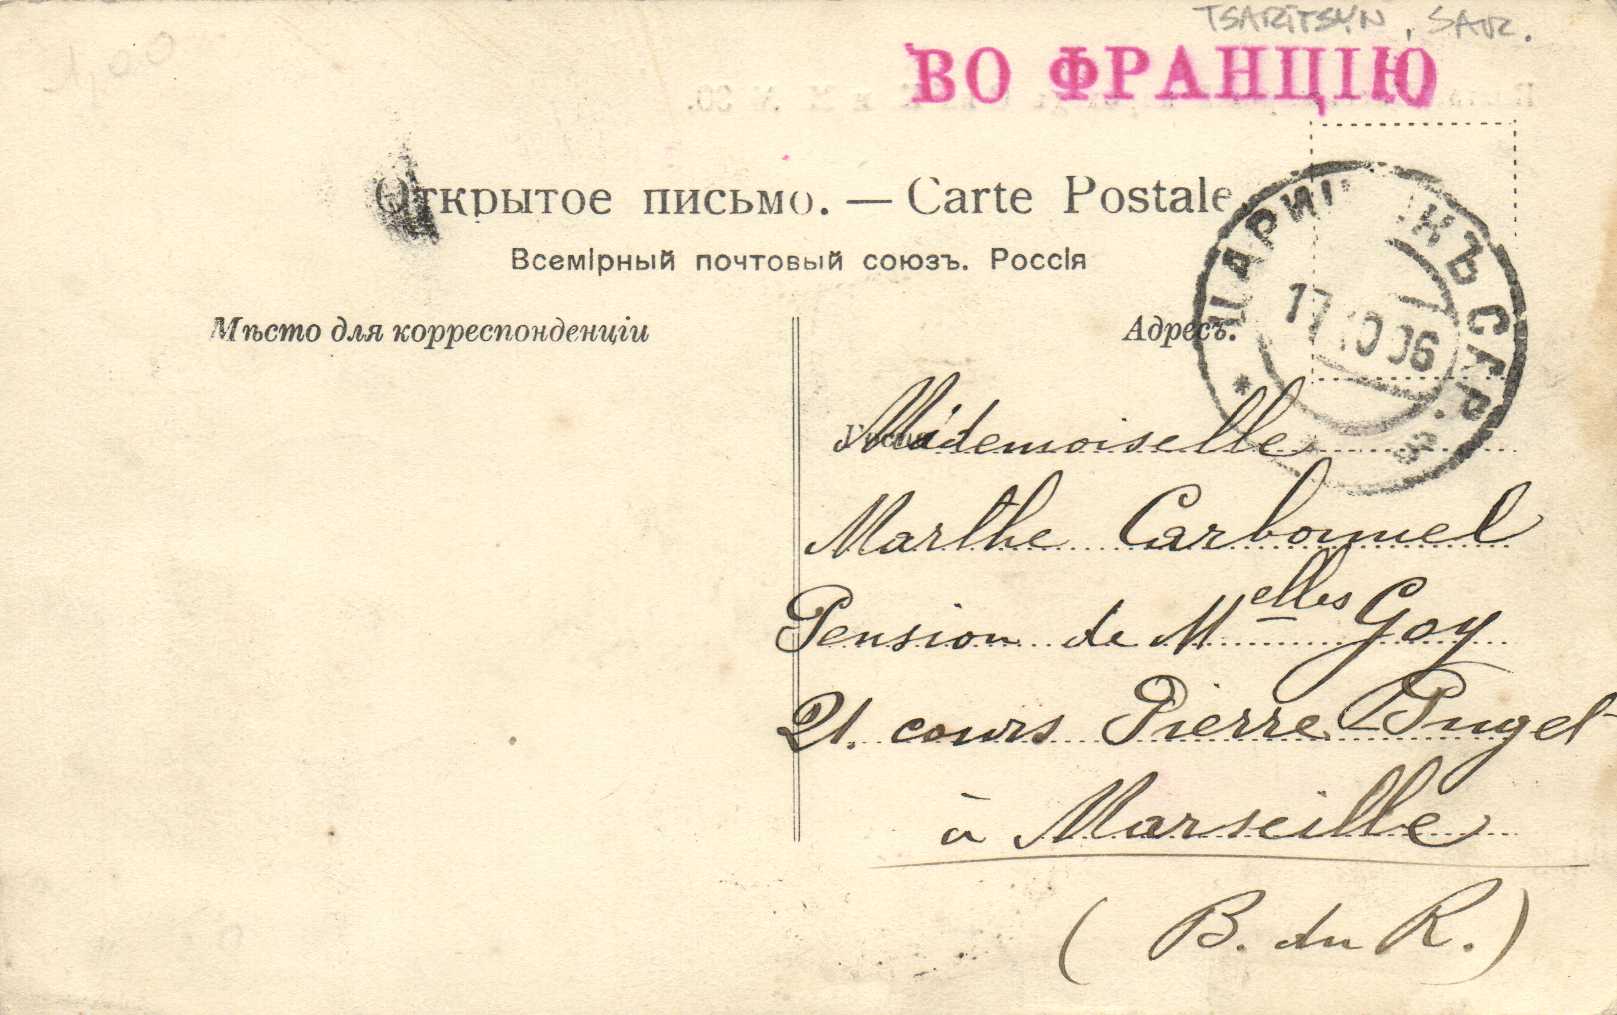 1,00
TSARITSYN, SAR.
ВО ФРАНЦІЮ
Открытое письмо. — Carte Postale
Всемірный почтовый союзъ. Россія
Мѣсто для корреспонденціи
Адресъ.
17 10 06
Mademoiselle
Marthe Carbonnel
Pension de Melles Goy
21. cours Pierre Puget
à Marseille
( B. du R. )